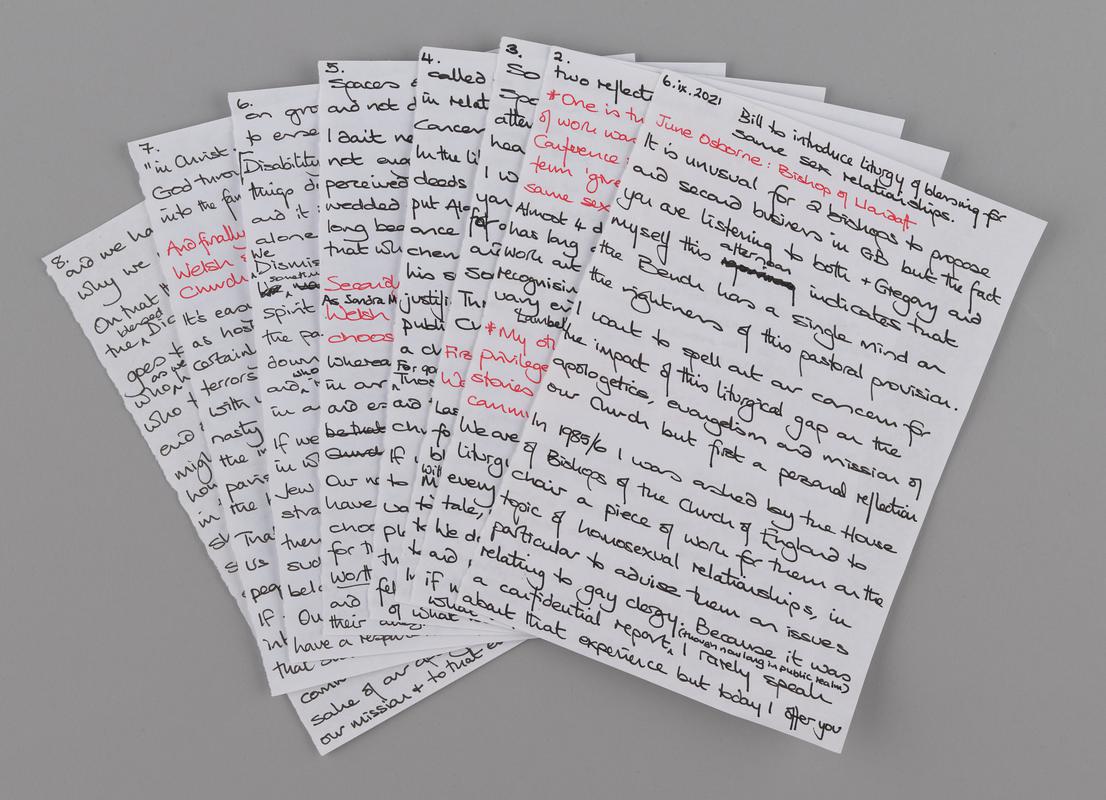 6.ix.2021
Bill to introduce liturgy of blessing for
same sex relationships.
June Osborne: Bishop of Llandaff
It is unusual for 2 bishops to propose
and second business in GB but the fact
you are listening to both + Gregory and
myself this afternoon indicates that
the Bench has a single mind on
the rightness of this pastoral provision.
I want to spell out our concern for
the impact of this liturgical gap on the
apologetics, evangelism and mission of
our Church but first a personal reflection
In 1985/6 I was asked by the House
of Bishops of the Church of England to
chair a piece of work for them on the
topic of homosexual relationships, in
particular to advise them on issues
relating to gay clergy. Because it was
a confidential report, (though now long in public realm) I rarely speak
about that experience but today I offer you
2.
two reflect
*One is th
of work wa
Conference
term 'give
same sex
Almost 4 d
has long
work an
recognisin
vary
Lambet
*My ot
privilege
stories
commu
We are
liturg
every
tale
We d
and
if w
what
3.
So
Spo
atte
hea
I w
you
for
So
Th
Firs
We
4.
called
in relat
Cancer
In the li
deeds
put
once
his s
justifi
publi
a ch
For go
Thos
and
chu
If
to
of what
5.
Spaces
and not d
I don't ne
not eno
perceived
wedded
long bee
that w
Second
As Sandra M
Welsh
choos
wherea
in our
and
be that
Church
Our n
have
choo
for th
worth
and
their
6.
on gro
to ense
Disability
things di
and it
alone
We
Dismis
sometim
spirit
the pa
down
and, who
in a
If we
in w
Jew
stra
them
suc
belo
Ou
have a respon
that
7.
"in Christ
God throu
into the fam
And finally
Welsh
Church
It's easy
as host
certain
terrors
with
nasty
the
paris
the
That
us
peo
If
int
8.
and we ha
why we
On that
blessed
then Dic
goes to
as we
who
who t
and
migh
how
in
comm
sake of our
our mission & to that e